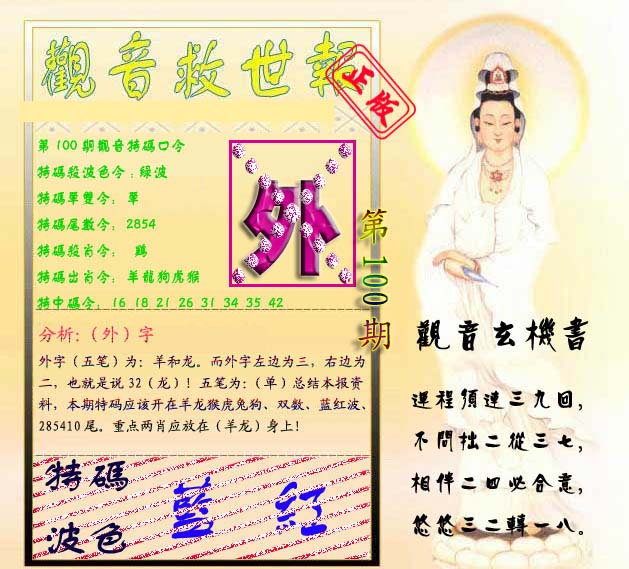 觀音救世報
正版
第100期觀音特碼口令
特碼殺波色令:綠波
特碼單雙令: 單
特碼尾數令: 2854
特碼殺肖令: 鷄
特碼出肖令: 羊龍狗虎猴
特中碼令: 16 18 21 26 31 34 35 42
外
第100期
分析:（外）字
外字（五笔）为: 羊和龙。而外字左边为三，右边为
二，也就是说32（龙）！五笔为:（单）总结本报资
料，本期特码应该开在羊龙猴虎兔狗、双数、蓝红波、
285410尾。重点两肖应放在（羊龙）身上！
特碼
波色
藍 紅
觀音玄機書
運程須連三九回，
不問拙二從三七，
相伴二四必合意，
悠悠三二轉一八。